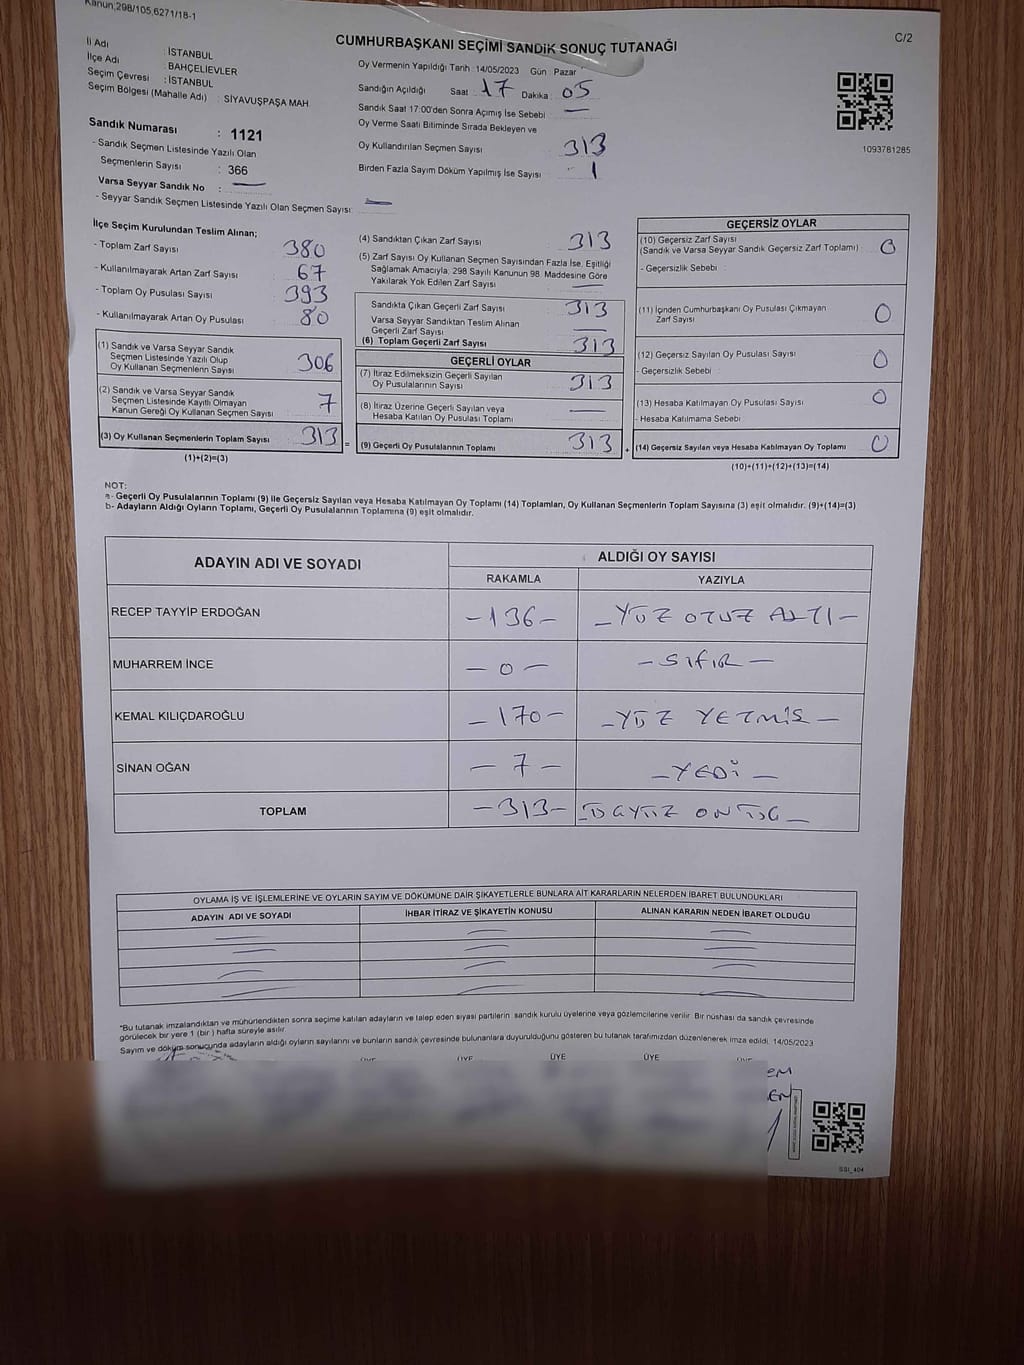 Kanun;298/105,6271/18-1
C/2
CUMHURBAŞKANI SEÇİMİ SANDIK SONUÇ TUTANAĞI
İl Adı : İSTANBUL
İlçe Adı : BAHÇELİEVLER
Seçim Çevresi : İSTANBUL
Seçim Bölgesi (Mahalle Adı) : SİYAVUŞPAŞA MAH.
Oy Vermenin Yapıldığı Tarih :14/05/2023 Gün : Pazar
Sandığın Açıldığı Saat : 17 Dakika : 05
Sandık Saat 17:00'den Sonra Açımış İse Sebebi : —
Oy Verme Saati Bitiminde Sırada Bekleyen ve
Oy Kullandırılan Seçmen Sayısı 313
Birden Fazla Sayım Döküm Yapılmış İse Sayısı 1
1093781285
Sandık Numarası : 1121
- Sandık Seçmen Listesinde Yazılı Olan
Seçmenlerin Sayısı : 366
Varsa Seyyar Sandık No : —
- Seyyar Sandık Seçmen Listesinde Yazılı Olan Seçmen Sayısı: —
İlçe Seçim Kurulundan Teslim Alınan;
- Toplam Zarf Sayısı 380
- Kullanılmayarak Artan Zarf Sayısı 67
- Toplam Oy Pusulası Sayısı 393
- Kullanılmayarak Artan Oy Pusulası 80
(1) Sandık ve Varsa Seyyar Sandık
Seçmen Listesinde Yazılı Olup
Oy Kullanan Seçmenlerin Sayısı 306
(2) Sandık ve Varsa Seyyar Sandık
Seçmen Listesinde Kayıtlı Olmayan
Kanun Gereği Oy Kullanan Seçmen Sayısı 7
(3) Oy Kullanan Seçmenlerin Toplam Sayısı 313 =
(1)+(2)=(3)
(4) Sandıktan Çıkan Zarf Sayısı 313
(5) Zarf Sayısı Oy Kullanan Seçmen Sayısından Fazla İse, Eşitliği
Sağlamak Amacıyla, 298 Sayılı Kanunun 98. Maddesine Göre
Yakılarak Yok Edilen Zarf Sayısı —
Sandıkta Çıkan Geçerli Zarf Sayısı 313
Varsa Seyyar Sandıktan Teslim Alınan
Geçerli Zarf Sayısı —
(6) Toplam Geçerli Zarf Sayısı 313
GEÇERLİ OYLAR
(7) İtiraz Edilmeksizin Geçerli Sayılan
Oy Pusulalarının Sayısı 313
(8) İtiraz Üzerine Geçerli Sayılan veya
Hesaba Katılan Oy Pusulası Toplamı —
(9) Geçerli Oy Pusulalarının Toplamı 313 +
GEÇERSİZ OYLAR
(10) Geçersiz Zarf Sayısı
(Sandık ve Varsa Seyyar Sandık Geçersiz Zarf Toplamı) 0
- Geçersizlik Sebebi :
(11) İçinden Cumhurbaşkanı Oy Pusulası Çıkmayan
Zarf Sayısı 0
(12) Geçersiz Sayılan Oy Pusulası Sayısı 0
- Geçersizlik Sebebi :
(13) Hesaba Katılmayan Oy Pusulası Sayısı 0
- Hesaba Katılmama Sebebi :
(14) Geçersiz Sayılan veya Hesaba Katılmayan Oy Toplamı 0
(10)+(11)+(12)+(13)=(14)
NOT:
a- Geçerli Oy Pusulalarının Toplamı (9) ile Geçersiz Sayılan veya Hesaba Katılmayan Oy Toplamı (14) Toplamları, Oy Kullanan Seçmenlerin Toplam Sayısına (3) eşit olmalıdır. (9)+(14)=(3)
b- Adayların Aldığı Oyların Toplamı, Geçerli Oy Pusulalarının Toplamına (9) eşit olmalıdır.
ADAYIN ADI VE SOYADI ALDIĞI OY SAYISI
RAKAMLA YAZIYLA
RECEP TAYYİP ERDOĞAN -136- -YÜZ OTUZ ALTI-
MUHARREM İNCE -0- -SIFIR-
KEMAL KILIÇDAROĞLU -170- -YÜZ YETMİŞ-
SİNAN OĞAN -7- -YEDİ-
TOPLAM -313- -ÜÇYÜZ ONÜÇ-
OYLAMA İŞ VE İŞLEMLERİNE VE OYLARIN SAYIM VE DÖKÜMÜNE DAİR ŞİKAYETLERLE BUNLARA AİT KARARLARIN NELERDEN İBARET BULUNDUKLARI
ADAYIN ADI VE SOYADI İHBAR İTİRAZ VE ŞİKAYETİN KONUSU ALINAN KARARIN NEDEN İBARET OLDUĞU
*Bu tutanak imzalandıktan ve mühürlendikten sonra seçime katılan adayların ve talep eden siyasi partilerin sandık kurulu üyelerine veya gözlemcilerine verilir. Bir nüshası da sandık çevresinde
görülecek bir yere 1 (bir) hafta süreyle asılır.
Sayım ve döküm sonucunda adayların aldığı oyların sayılarını ve bunların sandık çevresinde bulunanlara duyurulduğunu gösteren bu tutanak tarafımızdan düzenlenerek imza edildi. 14/05/2023
ÜYE ÜYE ÜYE ÜYE ÜYE
SSI_404